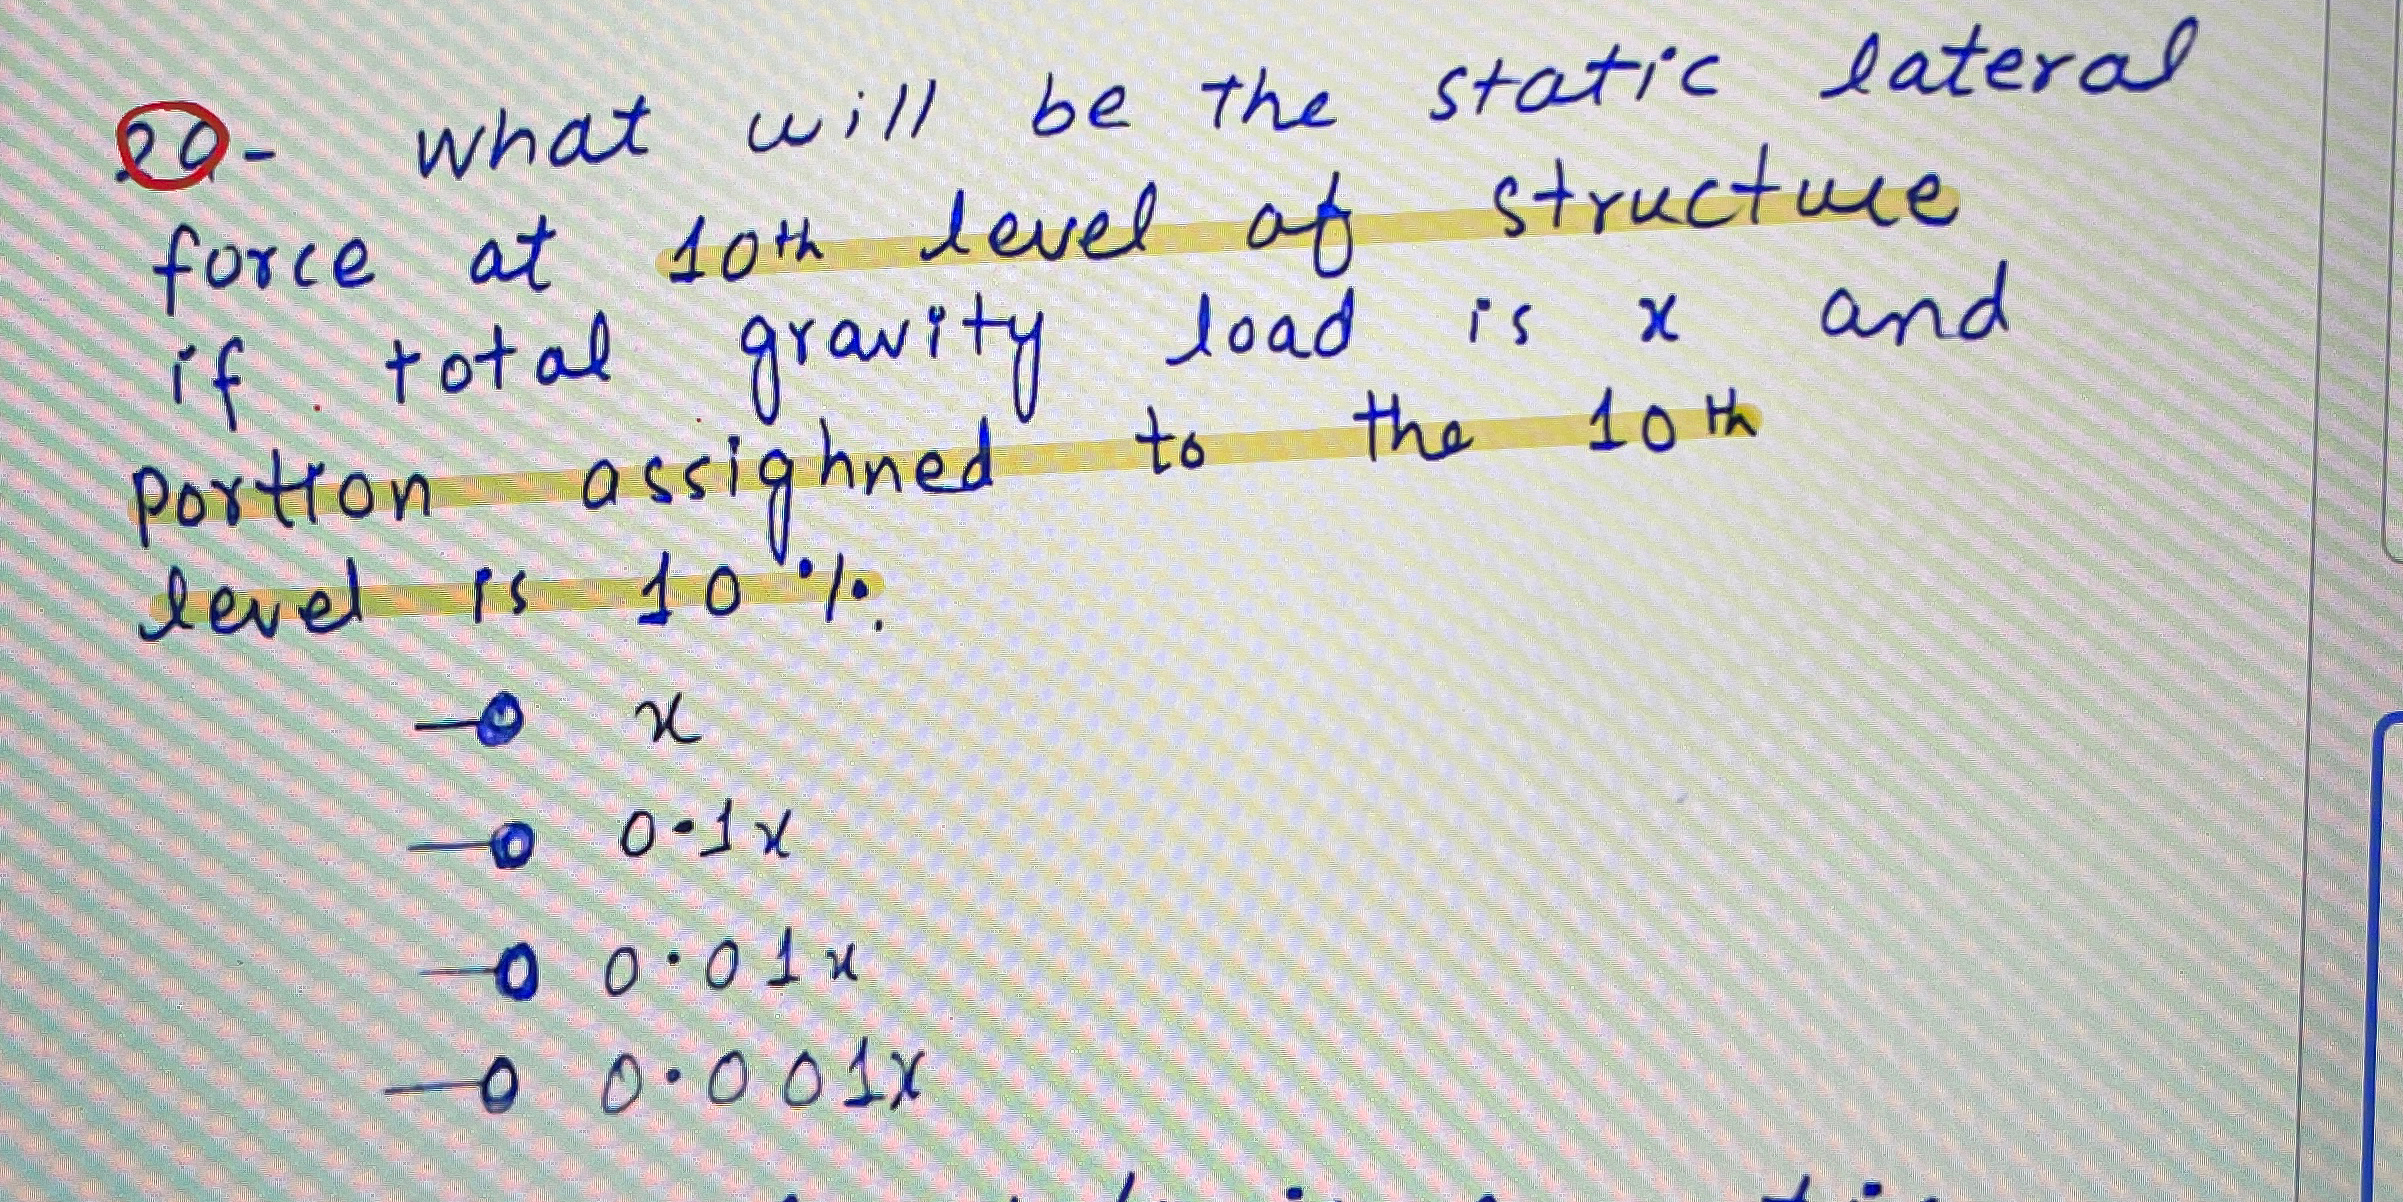 20- what will be the static lateral
force at 10th level of structure
if total gravity load is x and
portion assighned to the 10th
level is 10%.
x
0.1x
0.01x
0.001x